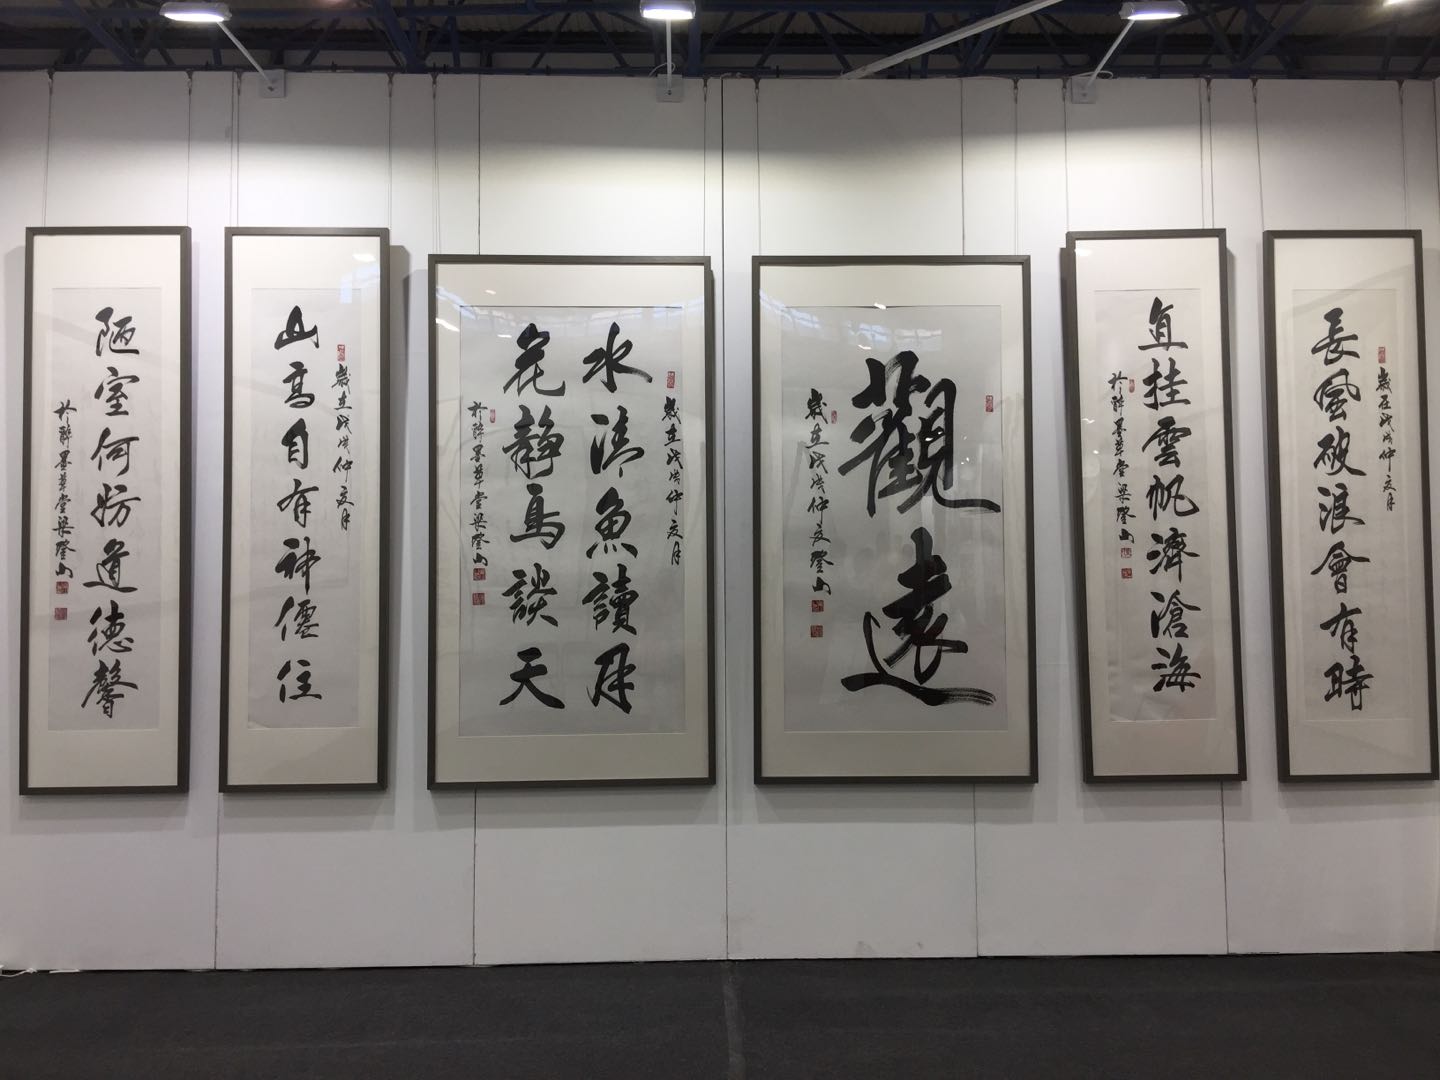 長風破浪會有時
歲在戊戌仲夏月
直挂雲帆濟滄海
於醉墨草堂梁登山
觀遠
歲在戊戌仲夏登山
歲在戊戌仲夏月
水清魚讀月
花静鳥談天
於醉墨草堂梁登山
歲在戊戌仲夏月
山高自有神僊住
陋室何妨道德馨
於醉墨草堂梁登山